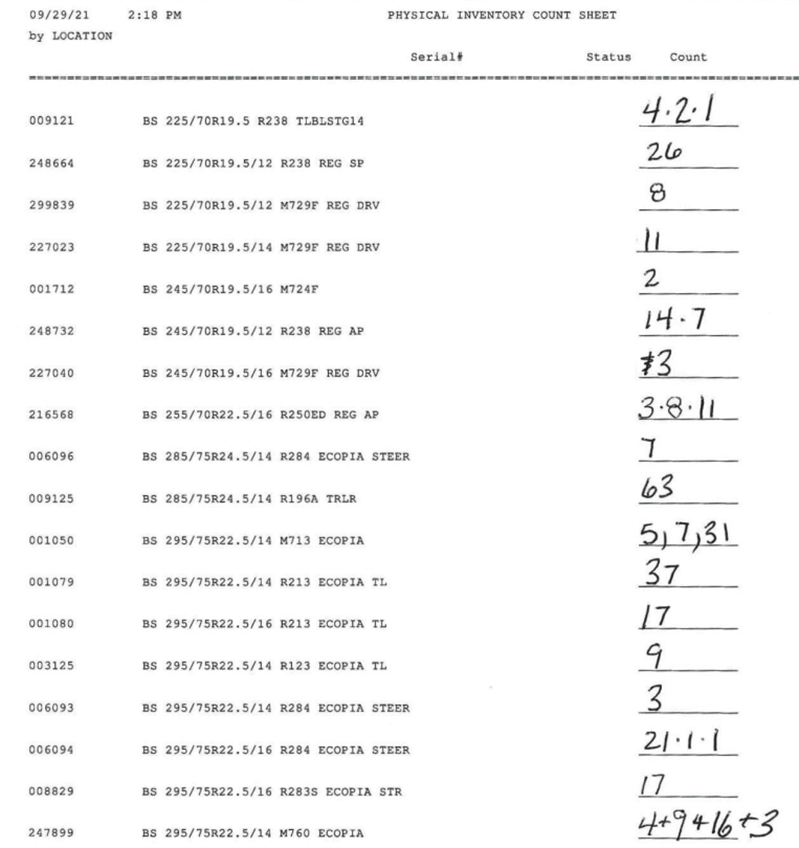 09/29/21 2:18 PM PHYSICAL INVENTORY COUNT SHEET
by LOCATION
Serial# Status Count
009121 BS 225/70R19.5 R238 TLBLSTG14 4·2·1
248664 BS 225/70R19.5/12 R238 REG SP 26
299839 BS 225/70R19.5/12 M729F REG DRV 8
227023 BS 225/70R19.5/14 M729F REG DRV 11
001712 BS 245/70R19.5/16 M724F 2
248732 BS 245/70R19.5/12 R238 REG AP 14·7
227040 BS 245/70R19.5/16 M729F REG DRV 3
216568 BS 255/70R22.5/16 R250ED REG AP 3·8·11
006096 BS 285/75R24.5/14 R284 ECOPIA STEER 7
009125 BS 285/75R24.5/14 R196A TRLR 63
001050 BS 295/75R22.5/14 M713 ECOPIA 5,7,31
001079 BS 295/75R22.5/14 R213 ECOPIA TL 37
001080 BS 295/75R22.5/16 R213 ECOPIA TL 17
003125 BS 295/75R22.5/14 R123 ECOPIA TL 9
006093 BS 295/75R22.5/14 R284 ECOPIA STEER 3
006094 BS 295/75R22.5/16 R284 ECOPIA STEER 21·1·1
008829 BS 295/75R22.5/16 R283S ECOPIA STR 17
247899 BS 295/75R22.5/14 M760 ECOPIA 4+9+16+3